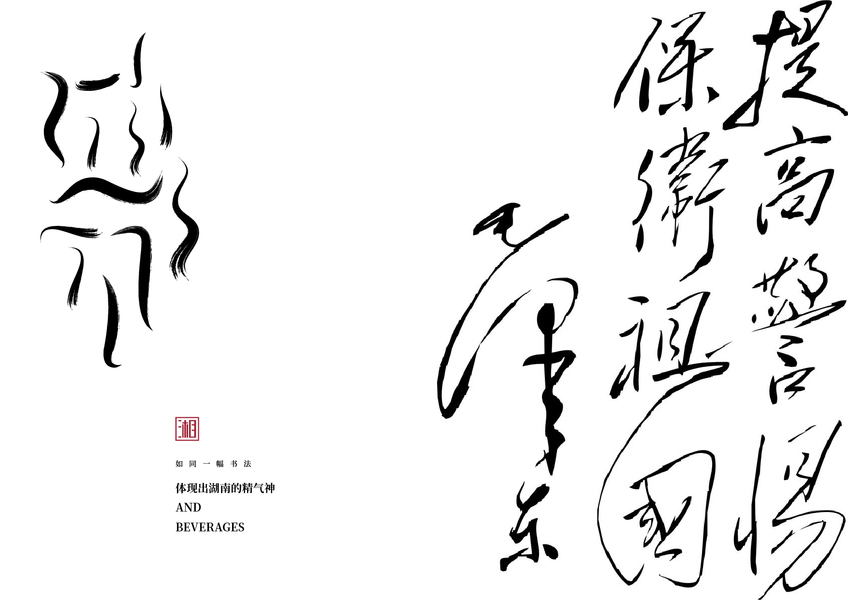 提高警惕
保衛祖國
毛泽东
湘
如同一幅书法
体现出湖南的精气神
AND
BEVERAGES